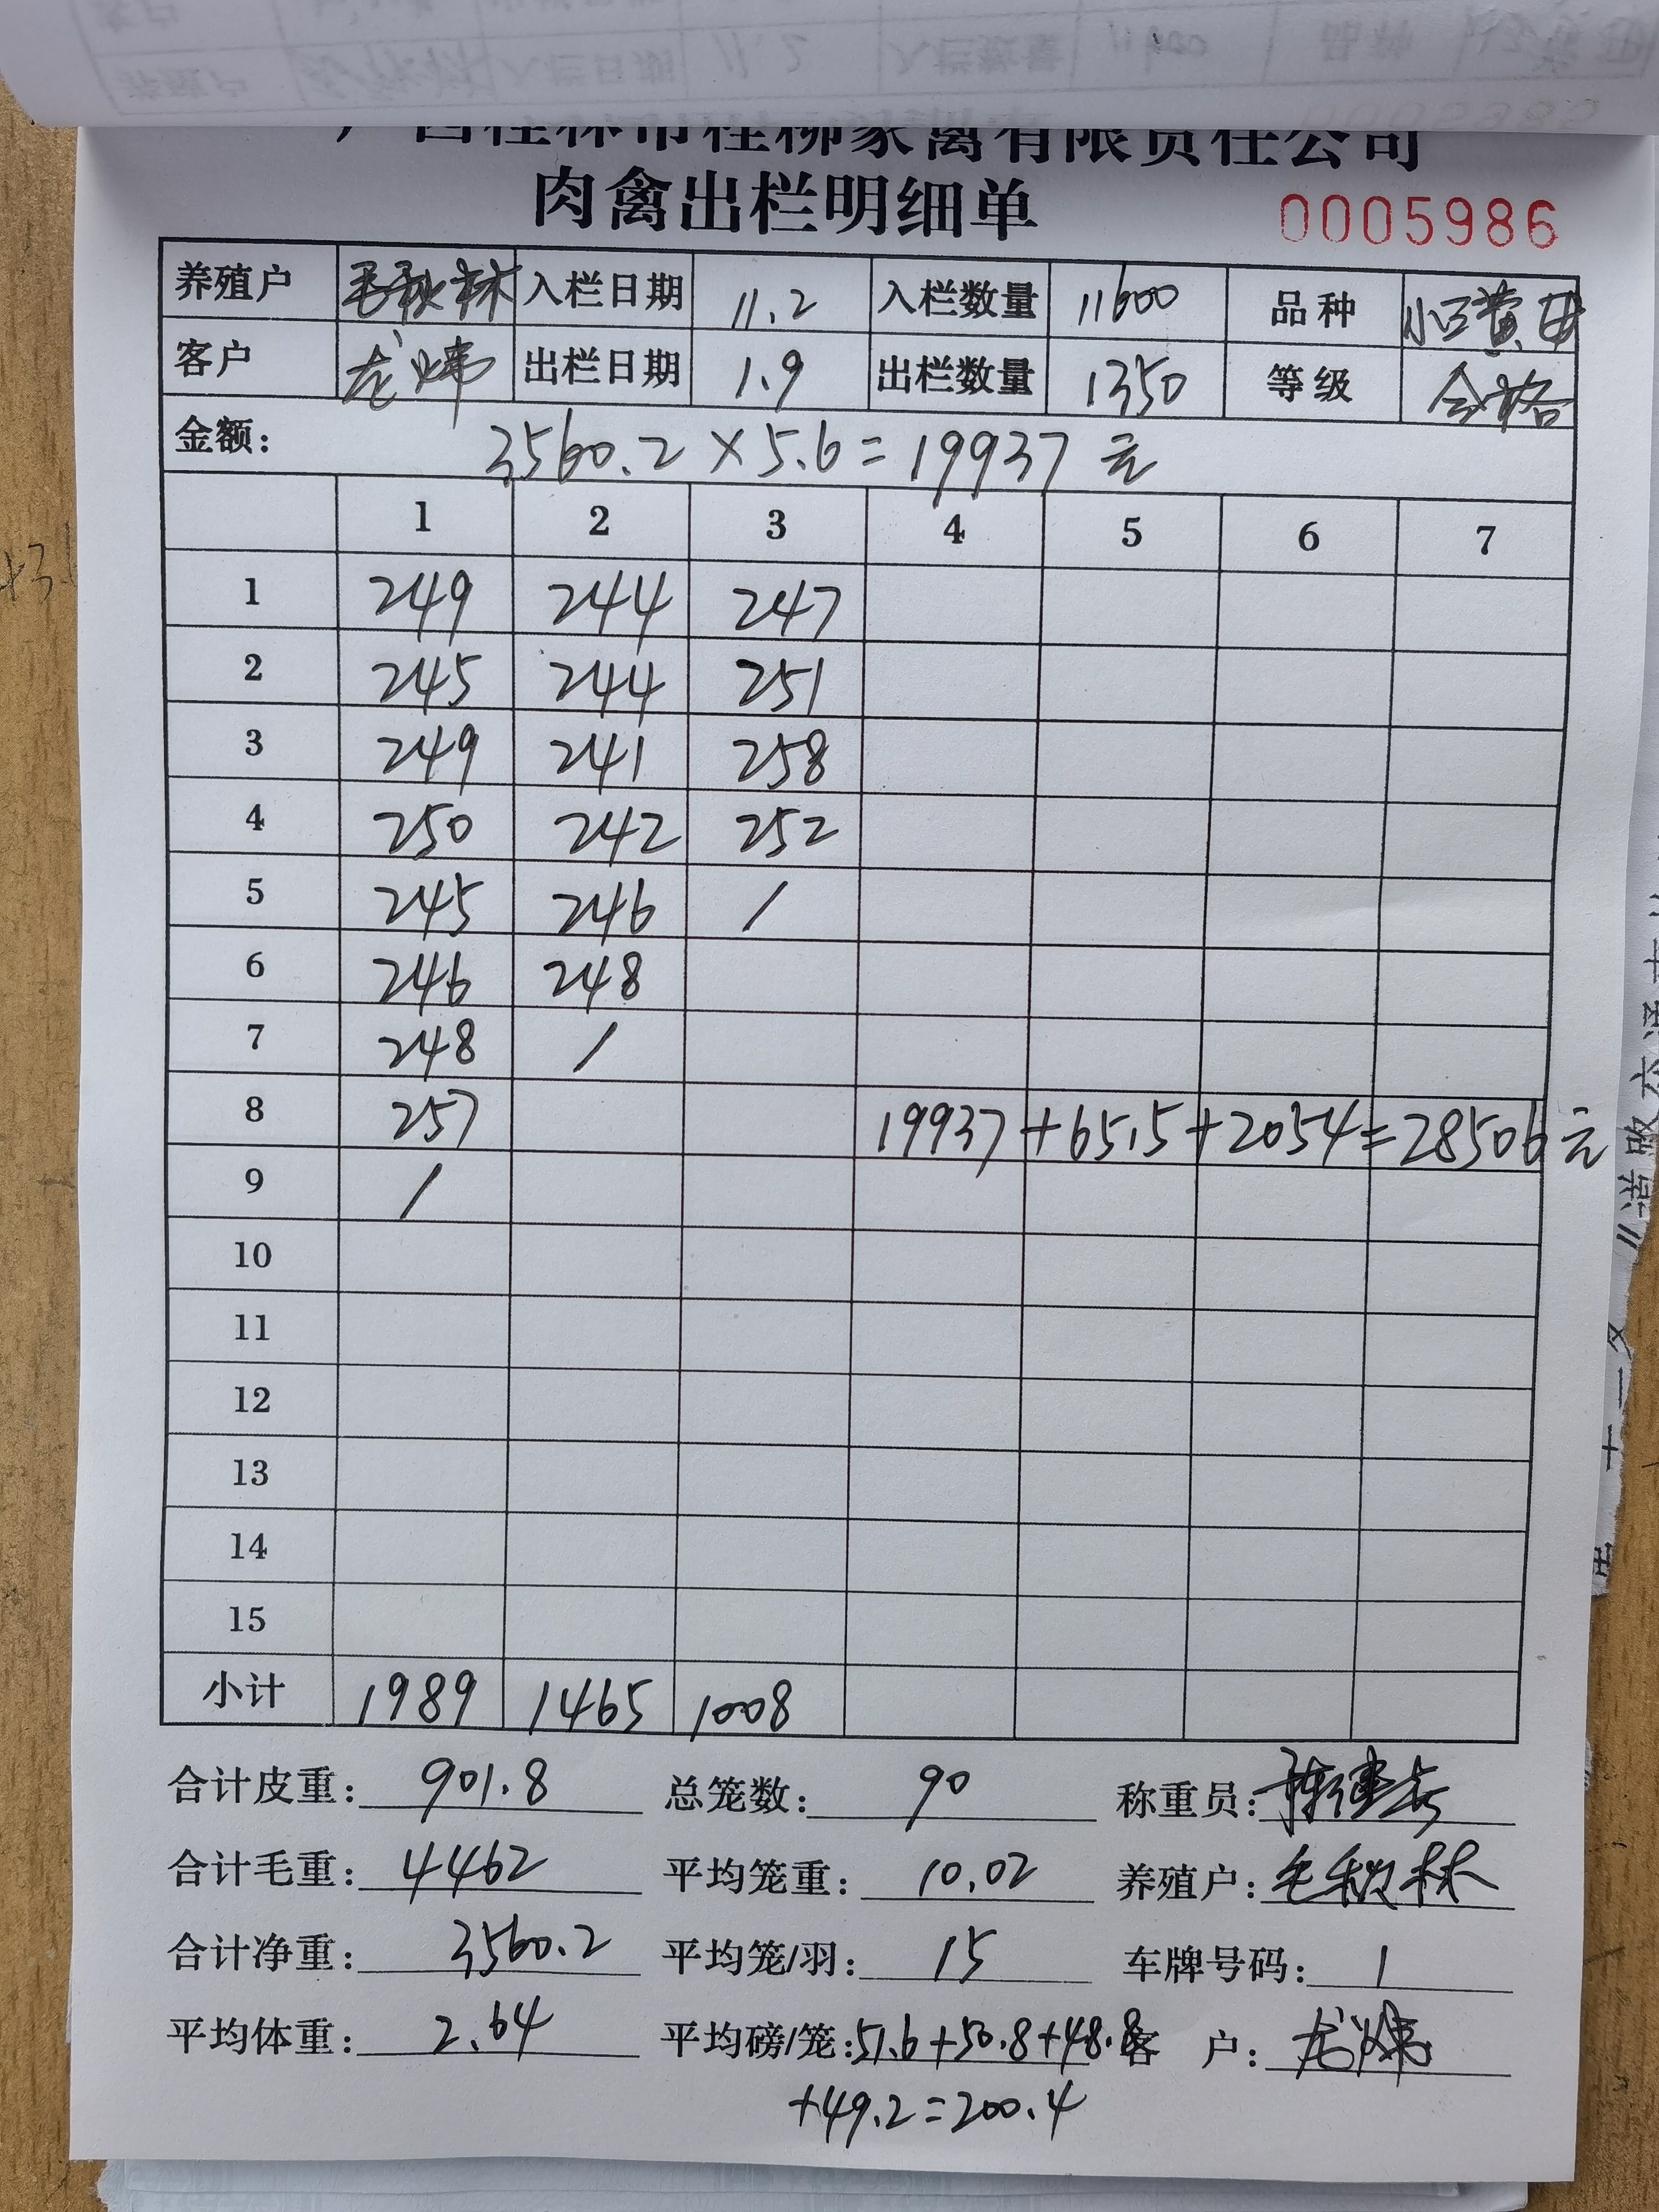 广西桂林市桂柳家禽有限责任公司
肉禽出栏明细单
0005986
养殖户 毛秋林 入栏日期 11.2 入栏数量 11600 品种
客户 龙炜 出栏日期 1.9 出栏数量 1350 等级 合格
金额: 3560.2×5.6=19937元
1 2 3 4 5 6 7
1 249 244 247
2 245 244 251
3 249 241 258
4 250 242 252
5 245 246 /
6 246 248
7 248 /
8 257 19937+6515+2054=28506元
9 /
10
11
12
13
14
15
小计 1989 1465 1008
合计皮重: 901.8 总笼数: 90 称重员:
合计毛重: 4462 平均笼重: 10.02 养殖户: 毛秋林
合计净重: 3560.2 平均笼/羽: 15 车牌号码: 1
平均体重: 2.64 平均磅/笼: 51.6+50.8+48.8 客 户: 龙炜
+49.2=200.4